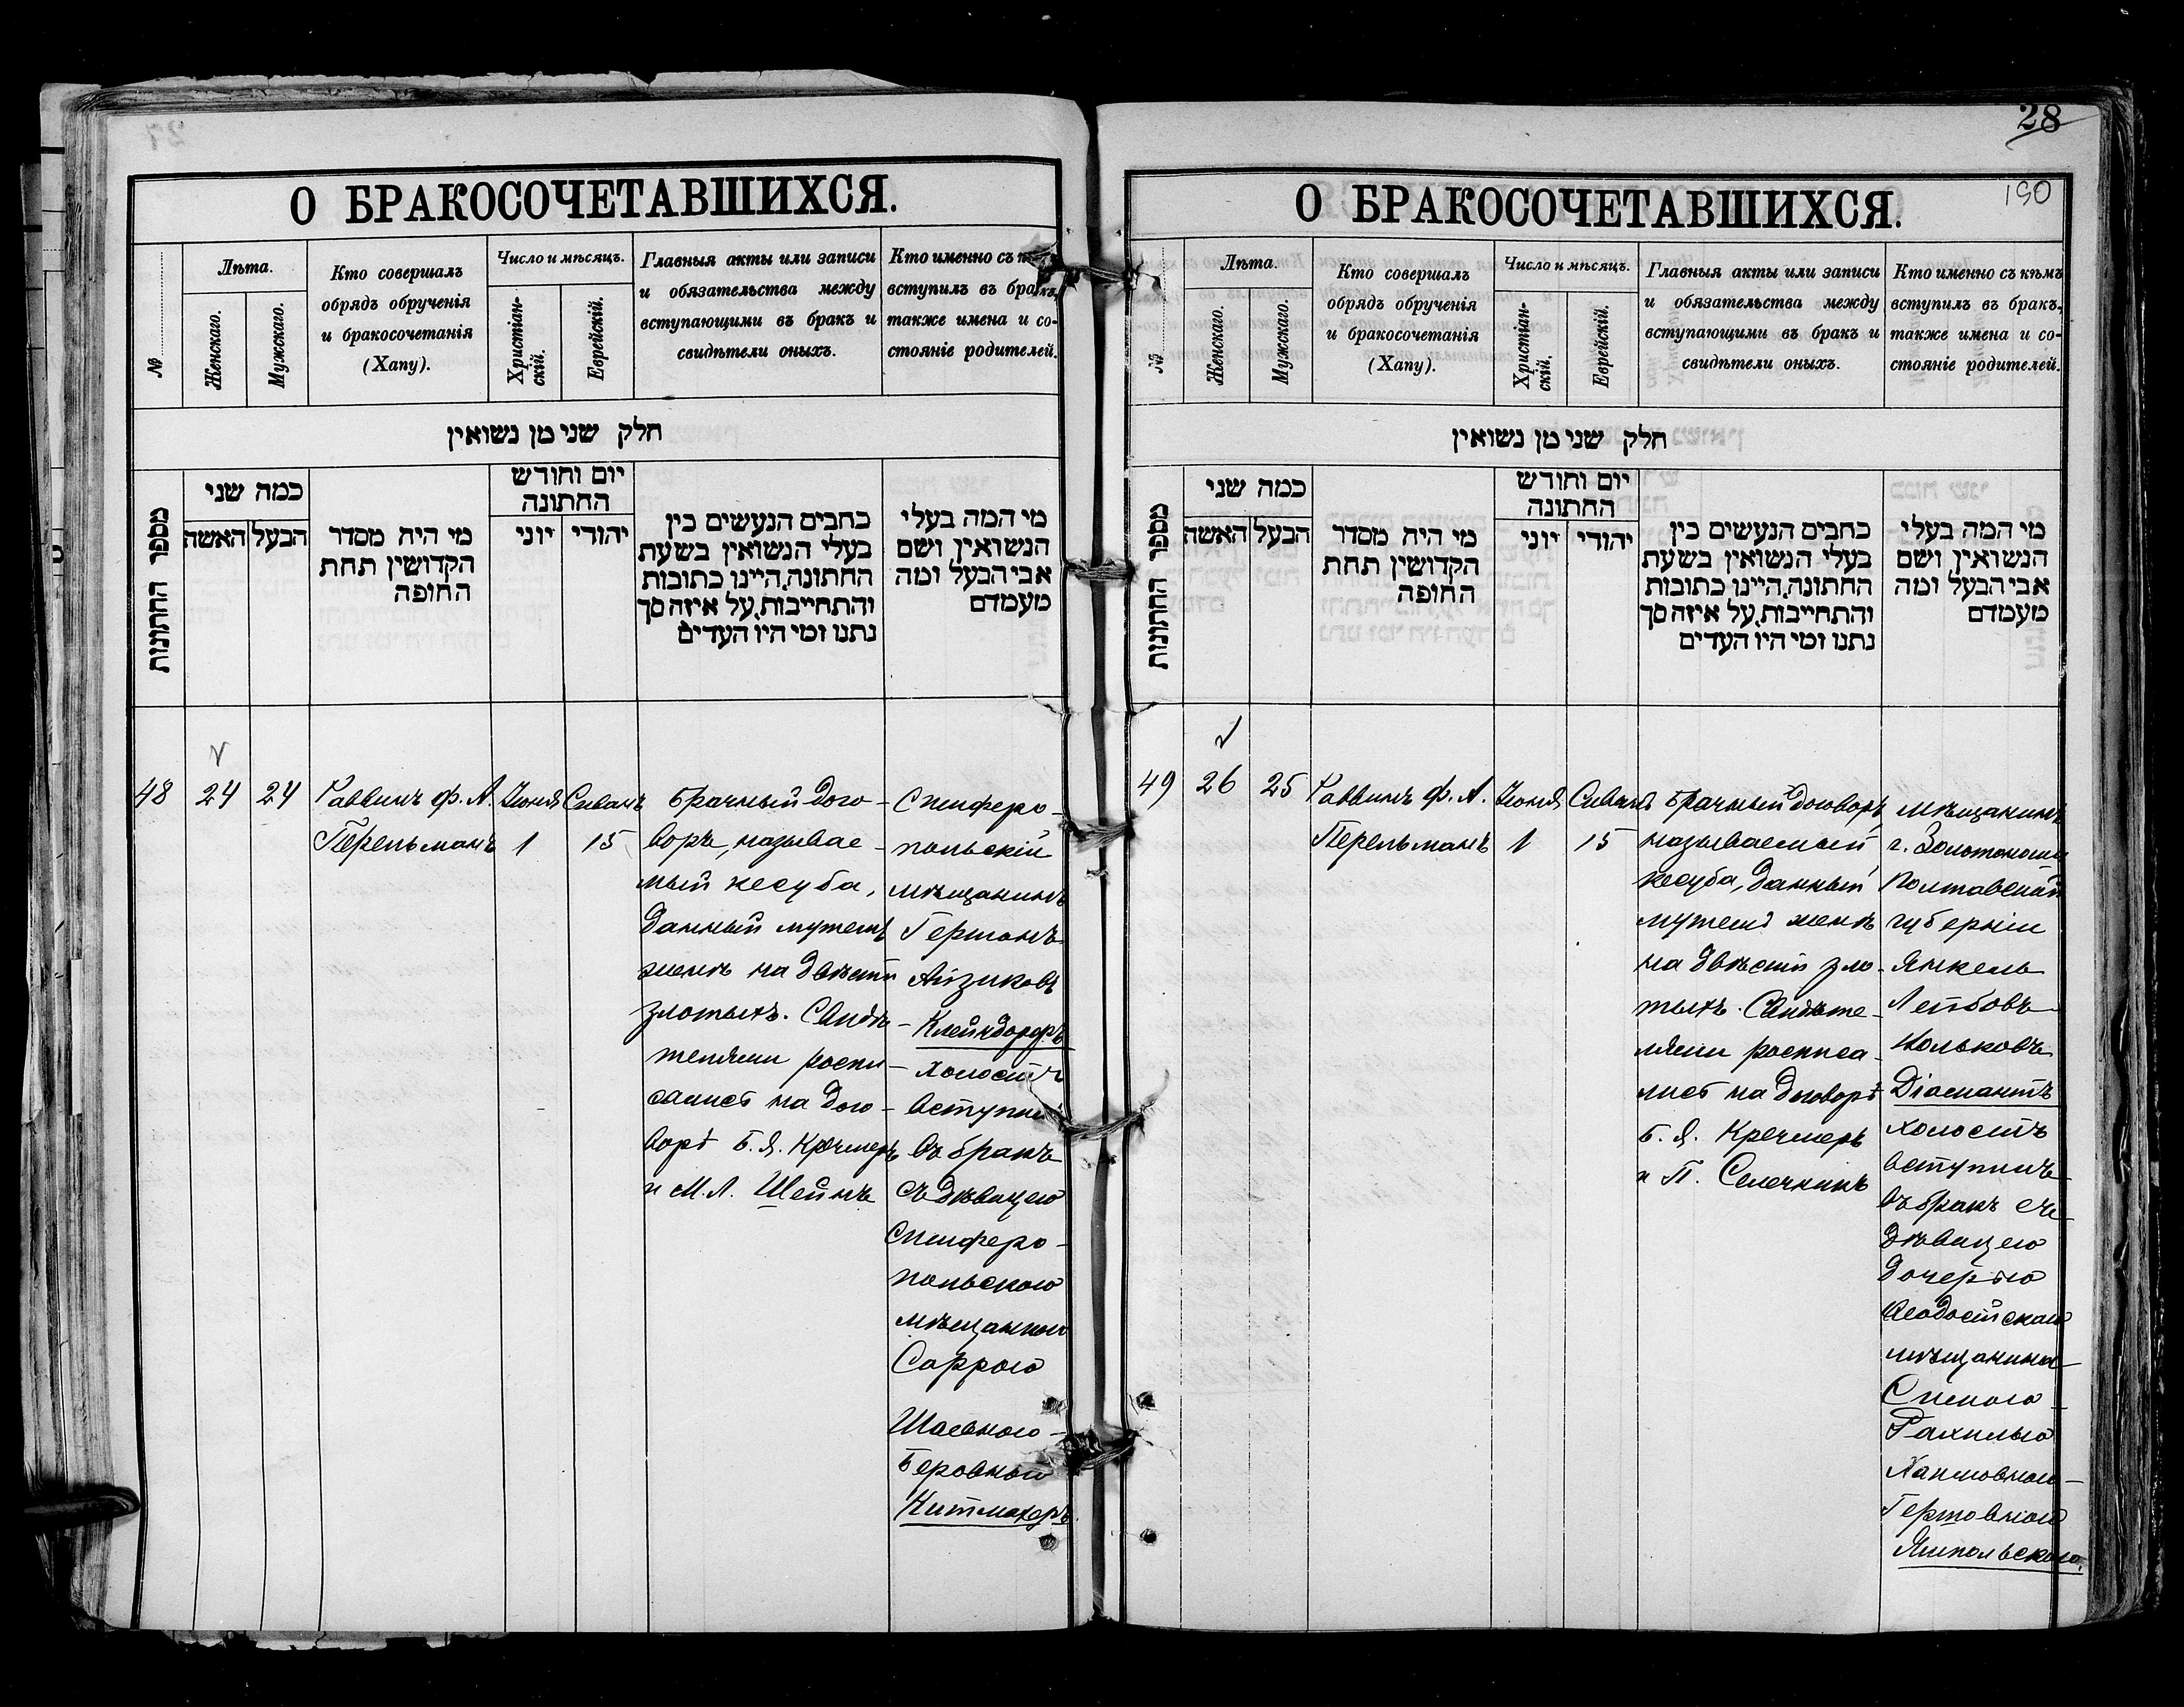 О БРАКОСОЧЕТАВШИХСЯ.
№
Лѣта.
Женскаго.
Мужскаго.
Кто совершалъ
обрядъ обрученія
и бракосочетанія
(Хапу).
Число и мѣсяцъ.
Христіан-
скій.
Еврейскій.
Главныя акты или записи
и обязательства между
вступающими въ бракъ и
свидѣтели оныхъ.
Кто именно съ
вступилъ въ бракъ,
также имена и со-
стояніе родителей.
חלק שני מן נשואין
מספר החתונות
כמה שני
האשה
הבעל
מי היה מסדר
הקדושין תחת
החופה
יום וחודש
החתונה
יוני
יהודי
כתבים הנעשים בין
בעלי הנשואין בשעת
החתונה, היינו כתובות
והתחייבות, על איזה סך
נתנו ומי היו העדים
מי המה בעלי
הנשואין ושם
אבי הבעל ומה
מעמדם
48
24
24
Раввинъ Ф. А.
Перельманъ
Іюня
1
Сиванъ
15
Брачный дого-
воръ, называе-
мый кесуба,
данный мужемъ
женѣ на двѣсти
злотыхъ. Свидѣ-
телями роспи-
сались на дого-
ворѣ Б. Я. Кречмеръ
и М. Л. Шейнъ
Симферо-
польскій
мѣщанинъ
Германъ
Айзиковъ
Клейндорфъ
холостъ
вступилъ
въ бракъ
съ дѣвицею
Симферо-
польскою
мѣщанкою
Саррою
Шаевною-
Беровною
Китмахеръ.
28
150
О БРАКОСОЧЕТАВШИХСЯ.
№
Лѣта.
Женскаго.
Мужскаго.
Кто совершалъ
обрядъ обрученія
и бракосочетанія
(Хапу).
Число и мѣсяцъ.
Христіан-
скій.
Еврейскій.
Главныя акты или записи
и обязательства между
вступающими въ бракъ и
свидѣтели оныхъ.
Кто именно съ кѣмъ
вступилъ въ бракъ,
также имена и со-
стояніе родителей.
חלק שני מן נשואין
מספר החתונות
כמה שני
האשה
הבעל
מי היה מסדר
הקדושין תחת
החופה
יום וחודש
החתונה
יוני
יהודי
כתבים הנעשים בין
בעלי הנשואין בשעת
החתונה, היינו כתובות
והתחייבות, על איזה סך
נתנו ומי היו העדים
מי המה בעלי
הנשואין ושם
אבי הבעל ומה
מעמדם
49
26
25
Раввинъ Ф. А.
Перельманъ
Іюня
1
Сиванъ
15
Брачный договоръ
называемый
кесуба, данный
мужемъ женѣ
на двѣсти зло-
тыхъ. Свидѣте-
лями росписа-
лись на договорѣ
Б. Я. Кречмеръ
и П. Селечникъ
мѣщанинъ
г. Золотоноши
Полтавской
губерніи
Янкель
Лейбовъ
Нольковъ
Діамантъ
холостъ
вступилъ
въ бракъ съ
дѣвицею
дочерью
Ѳеодосійскаго
мѣщанина
Рахилью
Хаимовною-
Ямпольскою.